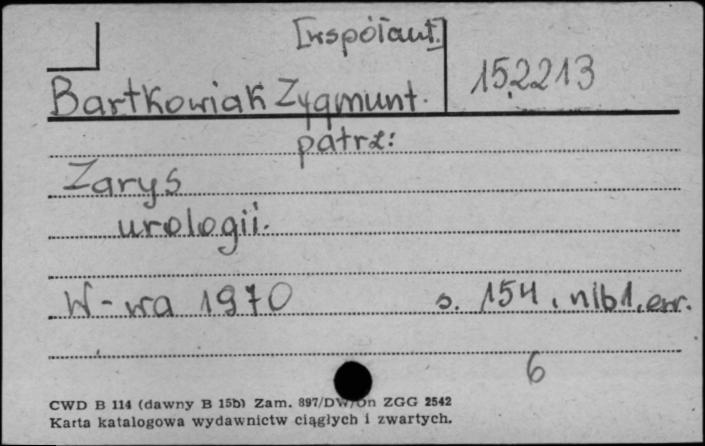 [współaut.]
Bartkowiak Zygmunt. 152213
patrz:
Zarys
urologii.
W-wa 1970 s. 154, nlb 1, err.
6
CWD B 114 (dawny B 15b) Zam. 897/DW/On ZGG 2542
Karta katalogowa wydawnictw ciągłych i zwartych.